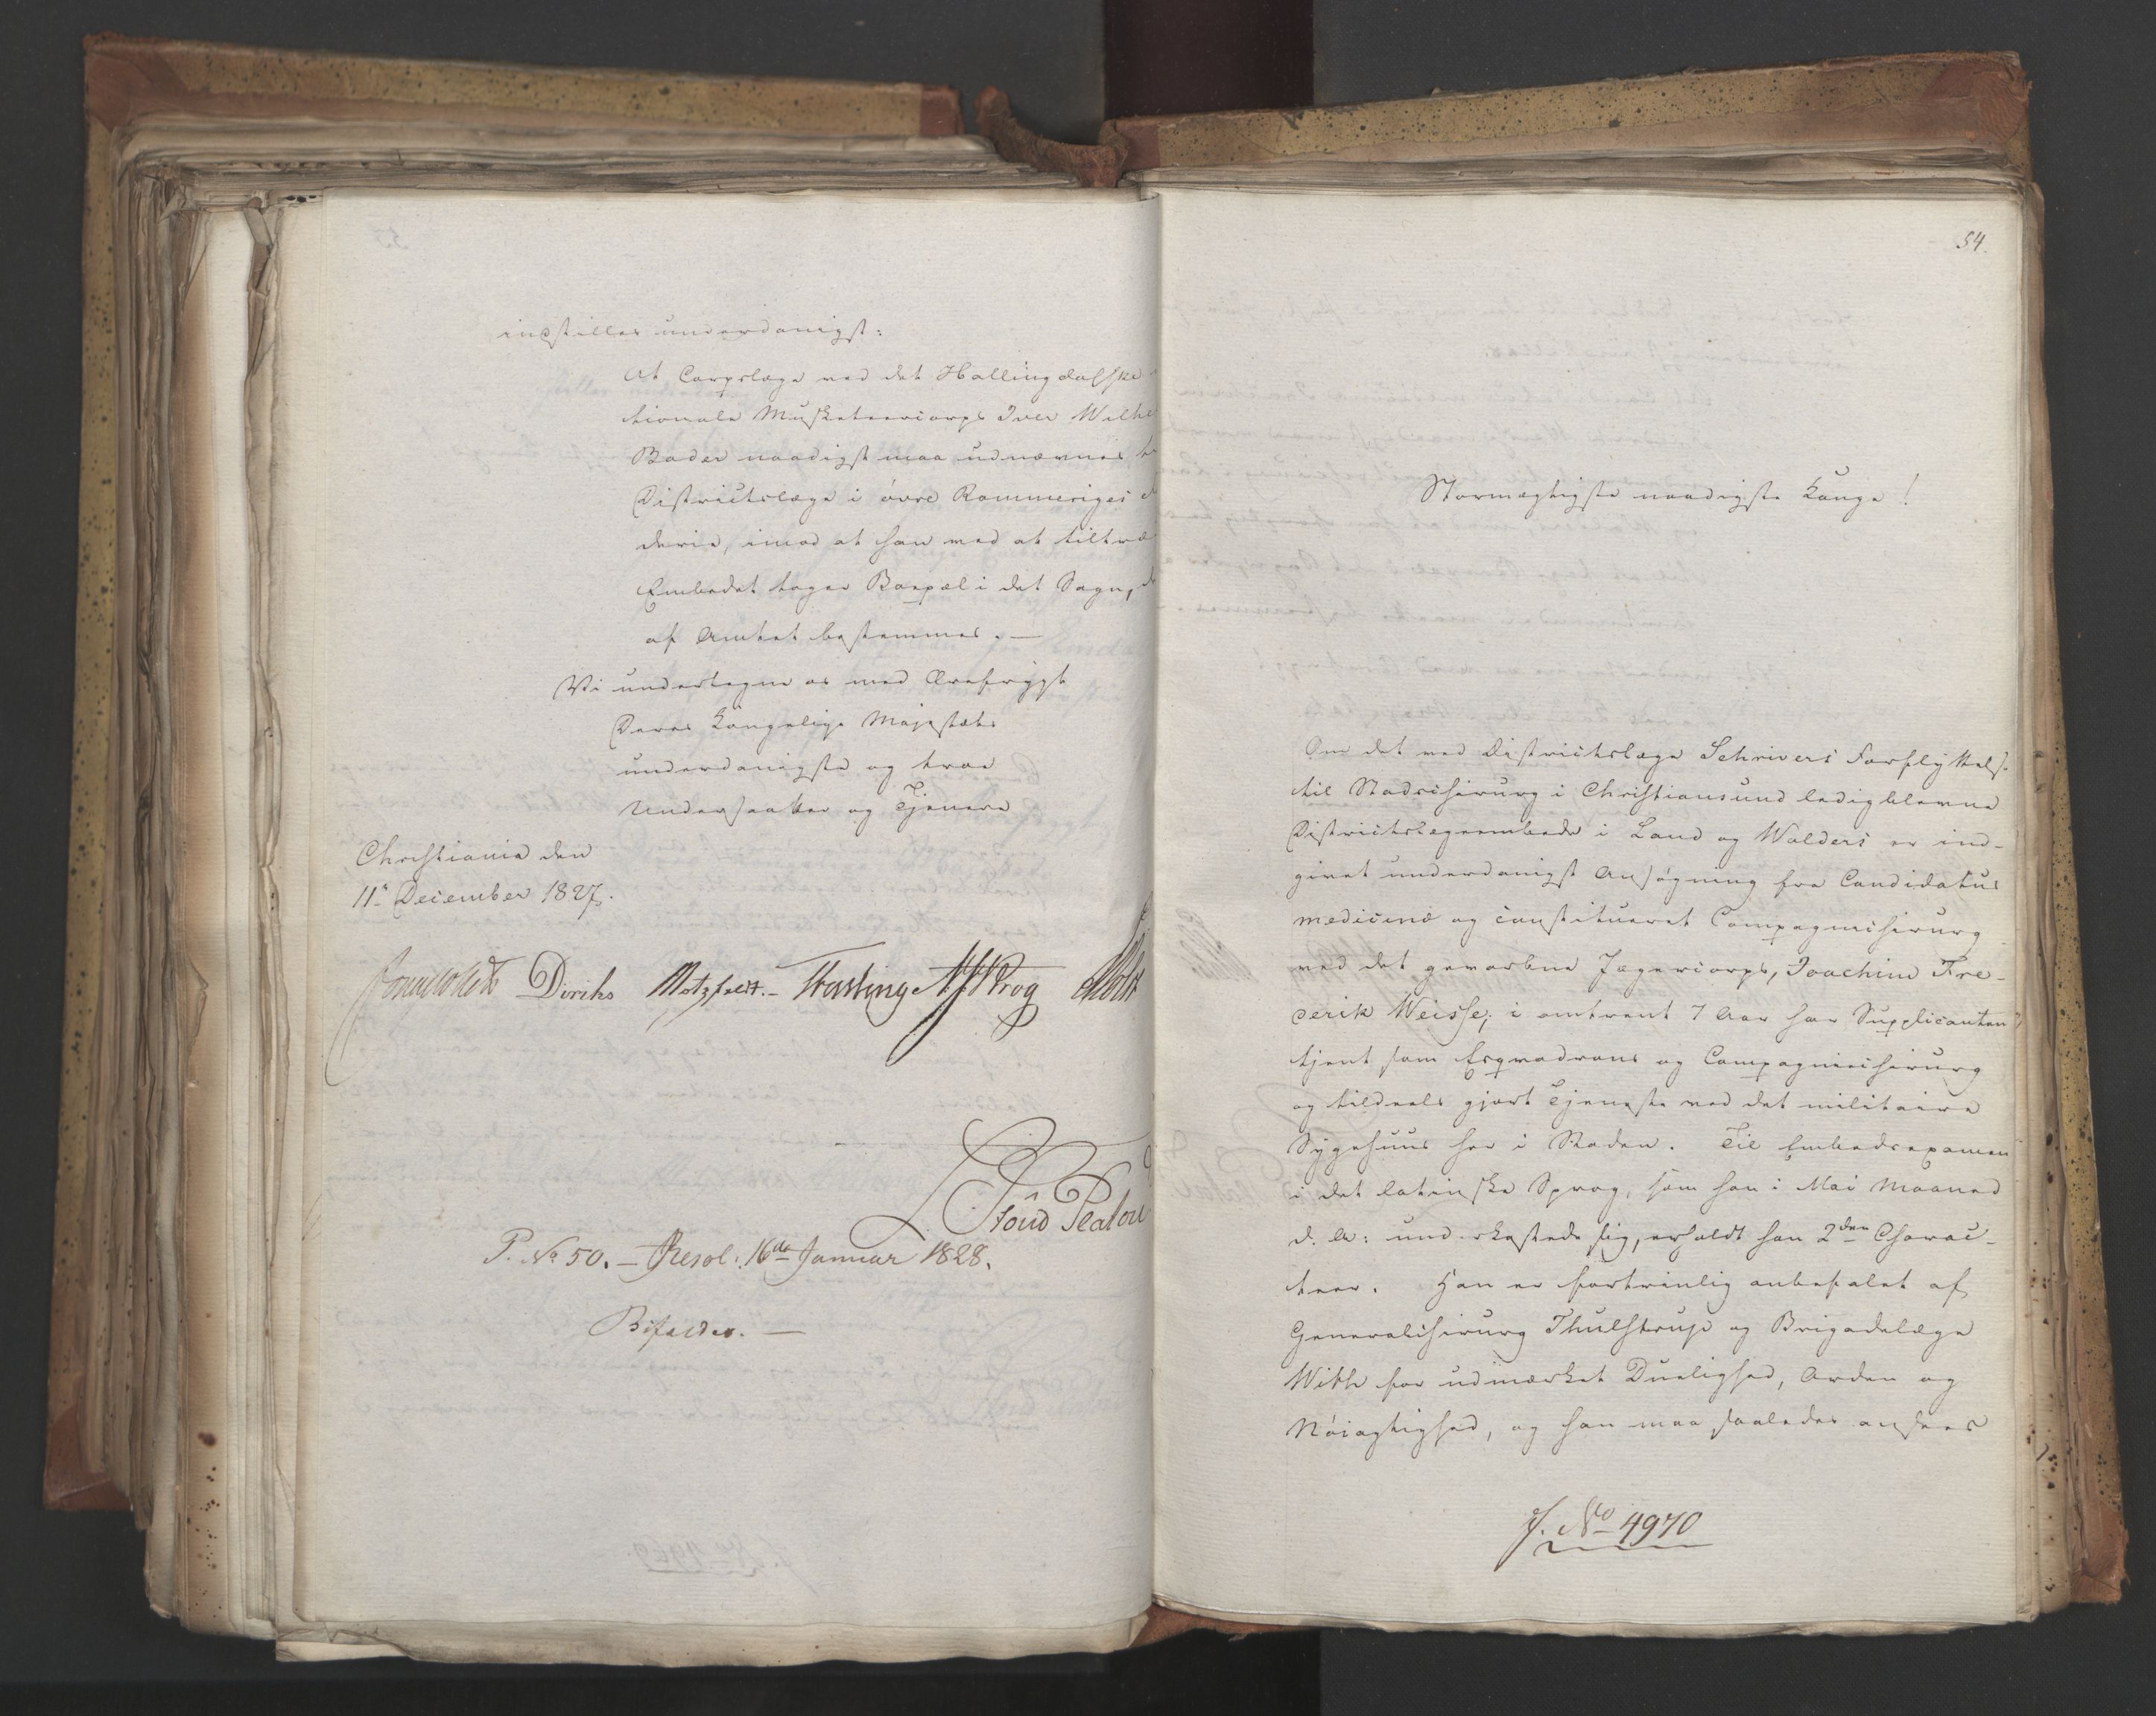 indstilles underdanigst:
At Corpslæge ved det Hallingdalske
tionale Musketeercorps Iver Wilhe
Bader naadigst maa udnævnes
Districtslæge i øvre Rommeriges
derie, imod at han med at tiltræ
Embedet tager Boepæl i det Sogn,
af Amtet bestemmes. —
Vi undertegne os med Ærefrygt
Deres Kongelige Majestæts
underdanigste og troe
Undersaatter og Tjenere
Christiania den
11te December 1827.
Diriks Motzfeldt. Fasting Krog Holst
Poul Platou
P. No 50. — Resol: 16de Januar 1828.
Bifaldes. —
54.
Stormægtigste naadigste Konge!
Om det ved Districtslæge Schrivers Forflyttelse
til Stadschirurg i Christiansund ledigblevne
Districtslægeembede i Land og Walders er ind-
givet underdanigst Ansøgning fra Candidatus
medicinæ og constitueret Compagnichirurg
ved det gevorbne Jægercorps, Joachim Fre-
derik Weisse; i omtrent 7 Aar har Supplicanten
tjent som Esqvadrons og Compagniechirurg
og tildeels gjort Tjeneste ved det militaire
Sygehuus her i Staden. Til Embedsexamen
i det latinske Sprog, som han i Mai Maaned
d. A: underkastede sig, erholdt han 2den Charac-
teer. Han er fortrinlig anbefalet af
Generalchirurg Thulstrup og Brigadelæge
With for udmærket Duelighed, Orden og
Nøiagtighed, og han maa saaledes ansees
J. No 4970